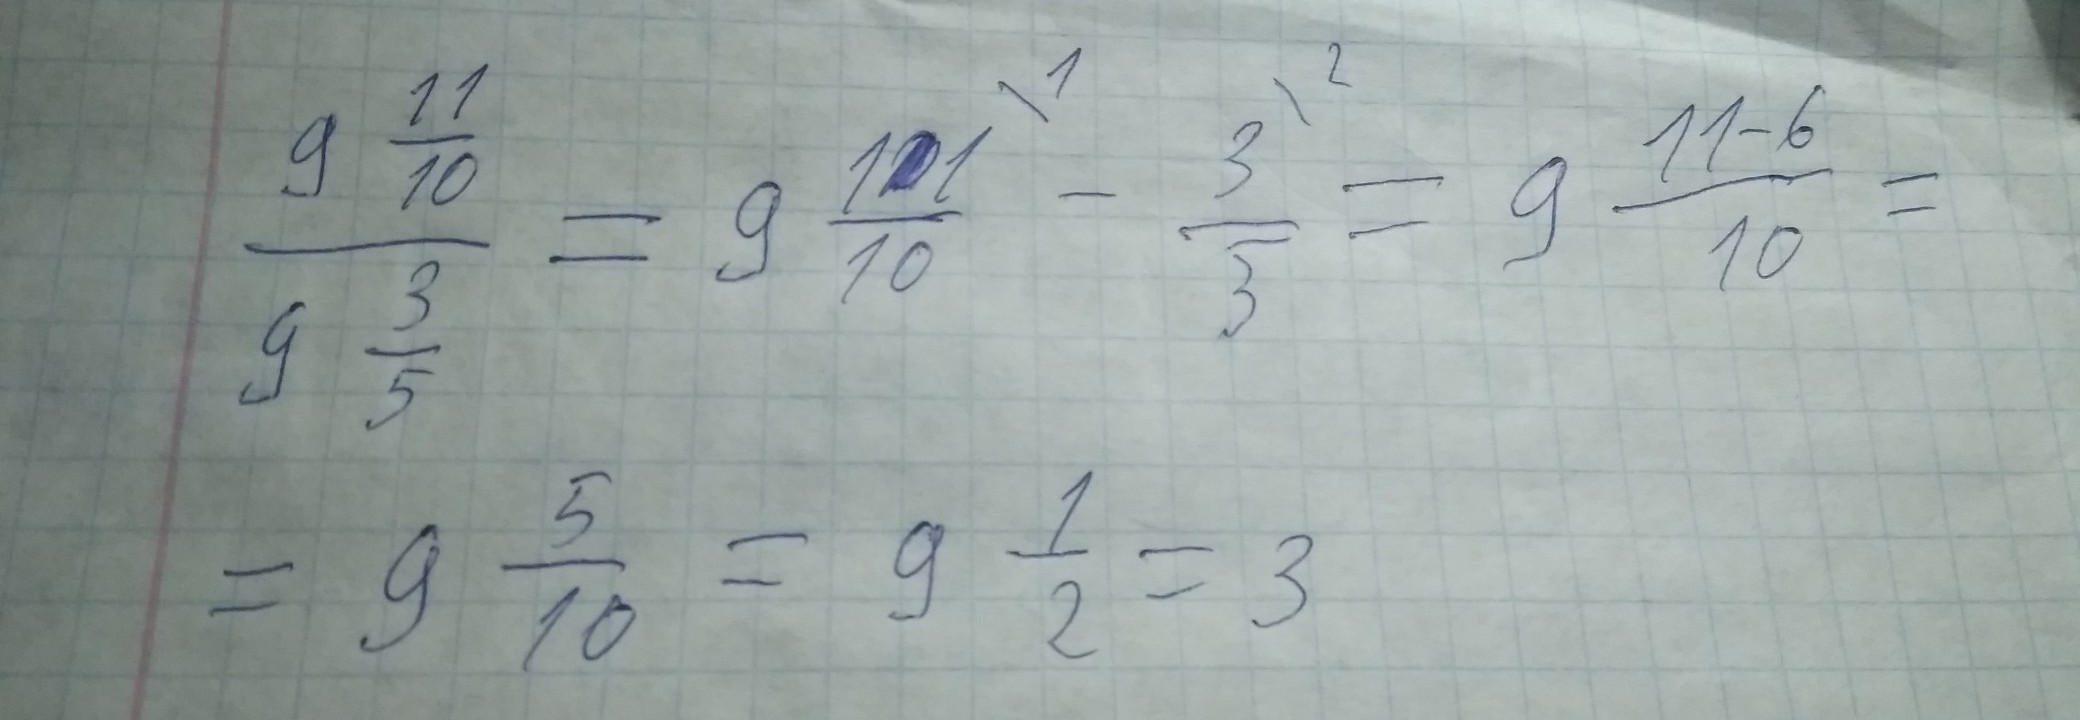 9^(11/10) / 9^(3/5) = 9^(11/10 \1 - 3/5 \2) = 9^((11-6)/10) =
= 9^(5/10) = 9^(1/2) = 3